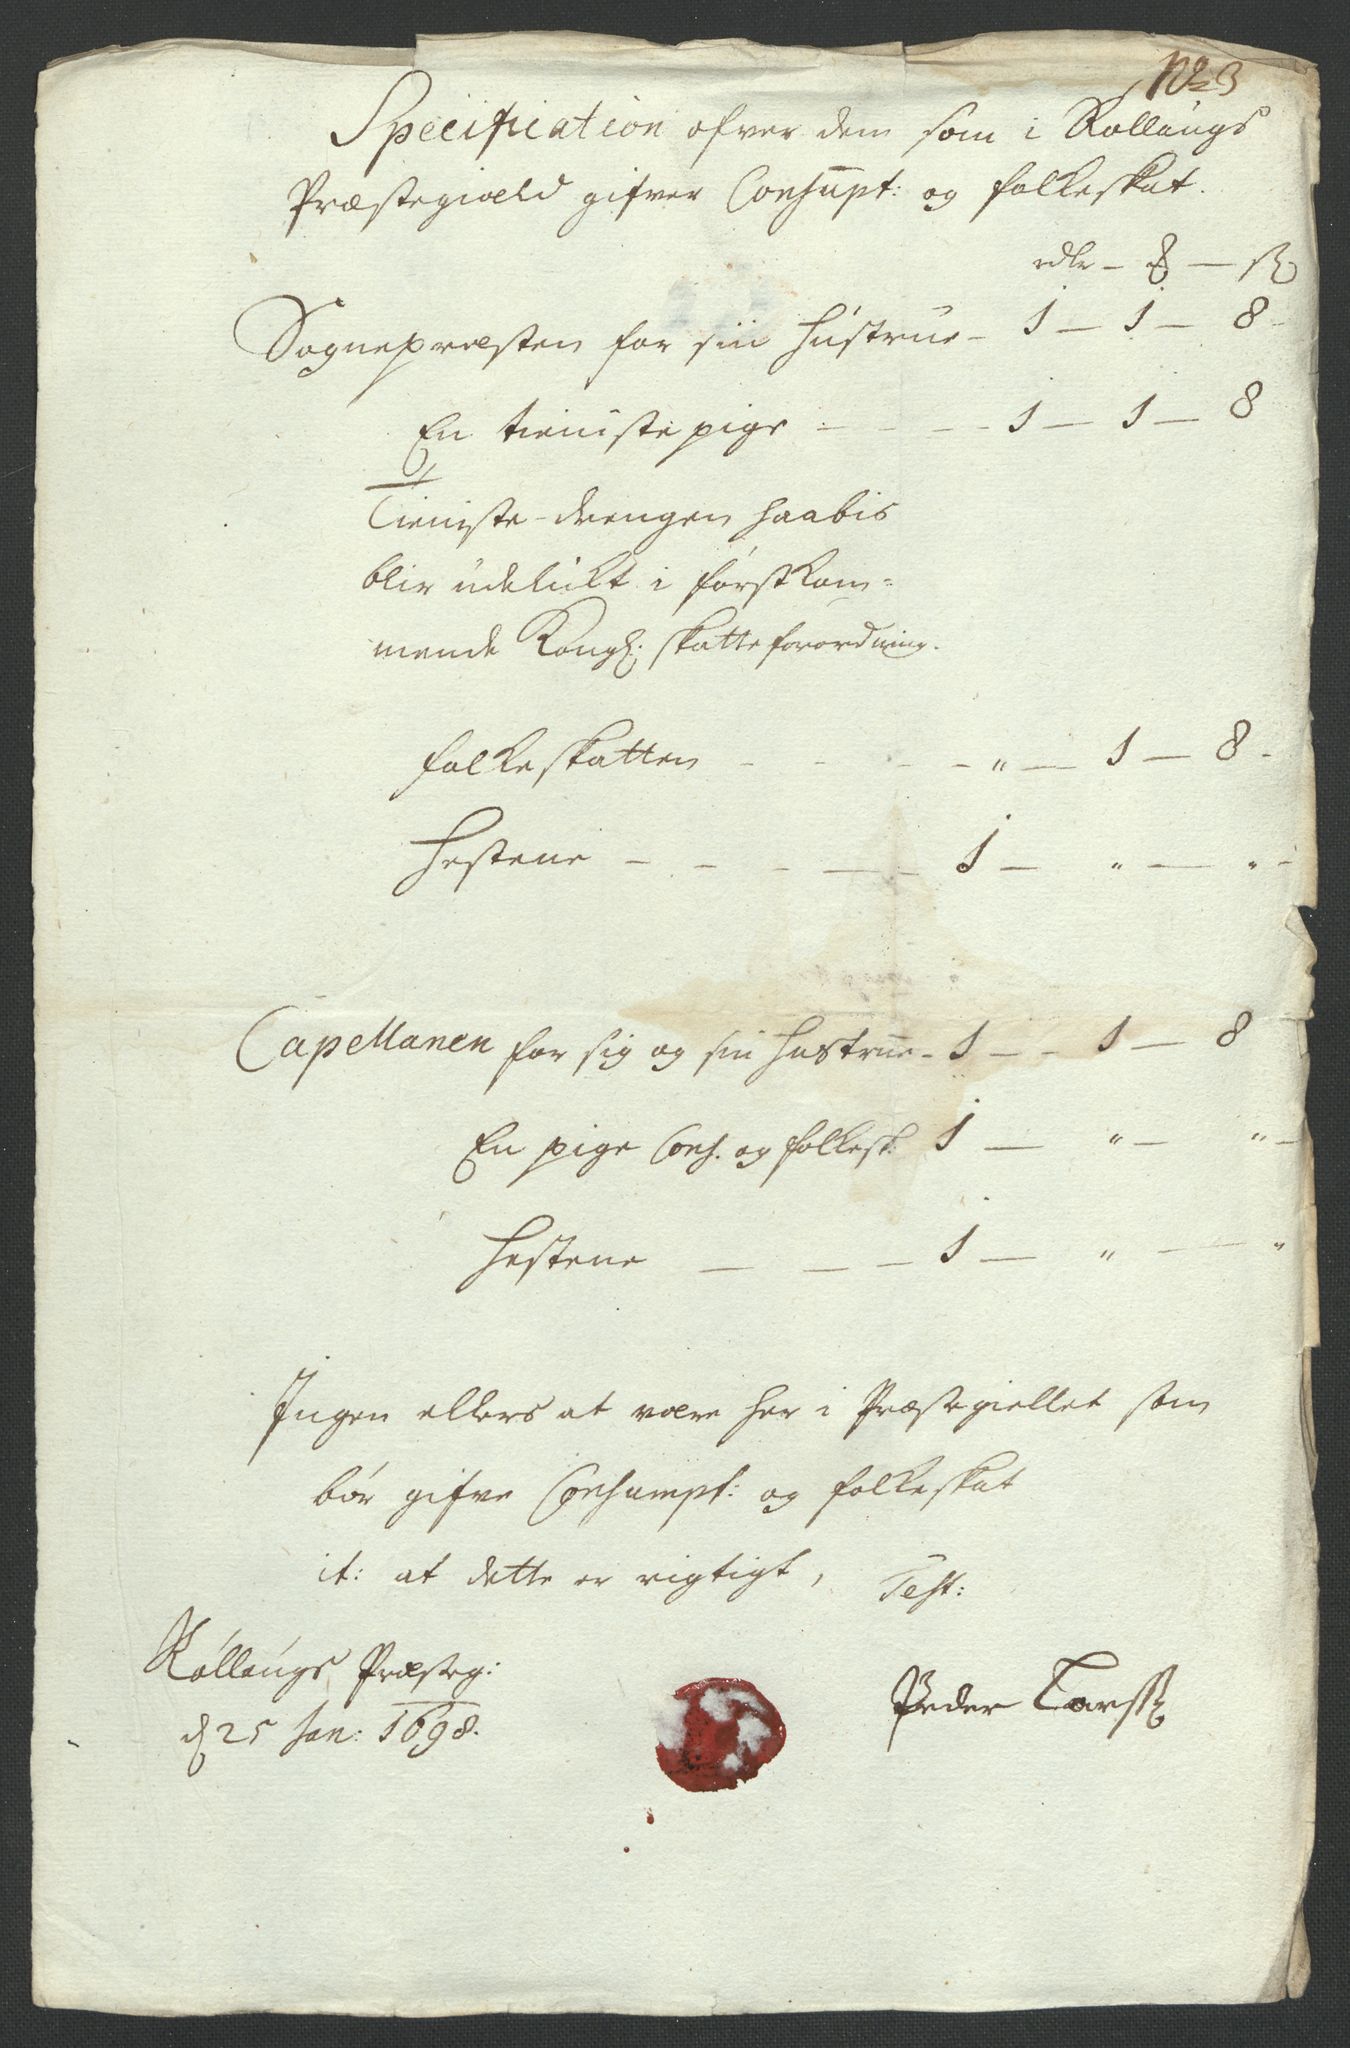 No 3
Specification ofver dem som i Rollaugs
Præstegiæld gifver Consupt: og folkeskat.
rdlr – ƺ – ß
Sognepræsten for sin hústrue – 1 – 1 – 8 –
En tienistepige – – – 1 – 1 – 8
Tieniste-drengen haabis
blir údelúkt i førstkom=
mende Kongl: skatte forordning.
folkeskatten – – – – " – 1 – 8 –
Hestene – – – – – 1 – " – " –
Capellanen for sig og sin hustrue – 1 – – 1 – 8
En pige Cons. og folkesk: 1 – " – " –
Hestene – – – 1 – " – – "
Ingen ellers at være her i Præstegiellet som
bør gifve Consumpt: og folkeskat
it: at dette er rigtigt, Test:
Róllaugs Præsteg:
d 25 Jan: 1698.
Peder Larsß